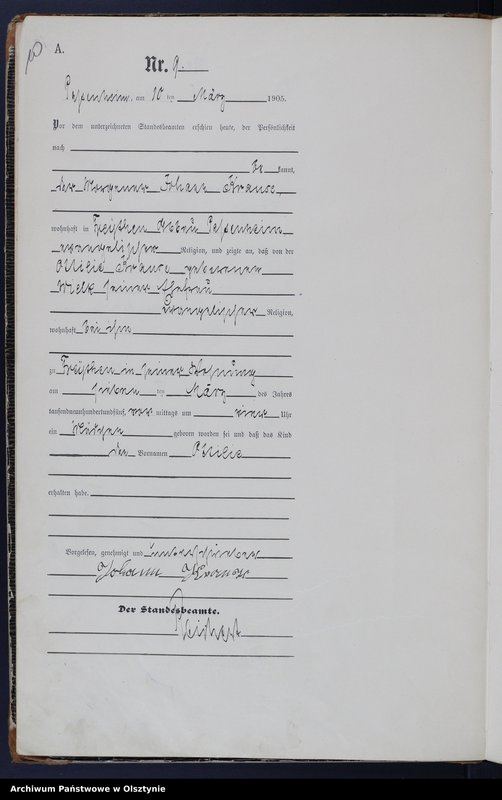 A.
Nr. 9.
Passenheim, am 10 ten März 1905.
Vor dem unterzeichneten Standesbeamten erschien heute, der Persönlichkeit
nach
be kannt,
der Johann
wohnhaft in Abbau Passenheim
evangelischer Religion, und zeigte an, daß von der
Ottilie geborenen
seiner Ehefrau
evangelischer Religion,
wohnhaft bei ihm
zu in seiner Wohnung
am sieben ten März des Jahres
tausendneunhundertundfünf, vor mittags um vier Uhr
ein Mädchen geboren worden sei und daß das Kind
den Vornamen Ottilie
erhalten habe.
Vorgelesen, genehmigt und unterschrieben
Johann
Der Standesbeamte.
Archiwum Państwowe w Olsztynie